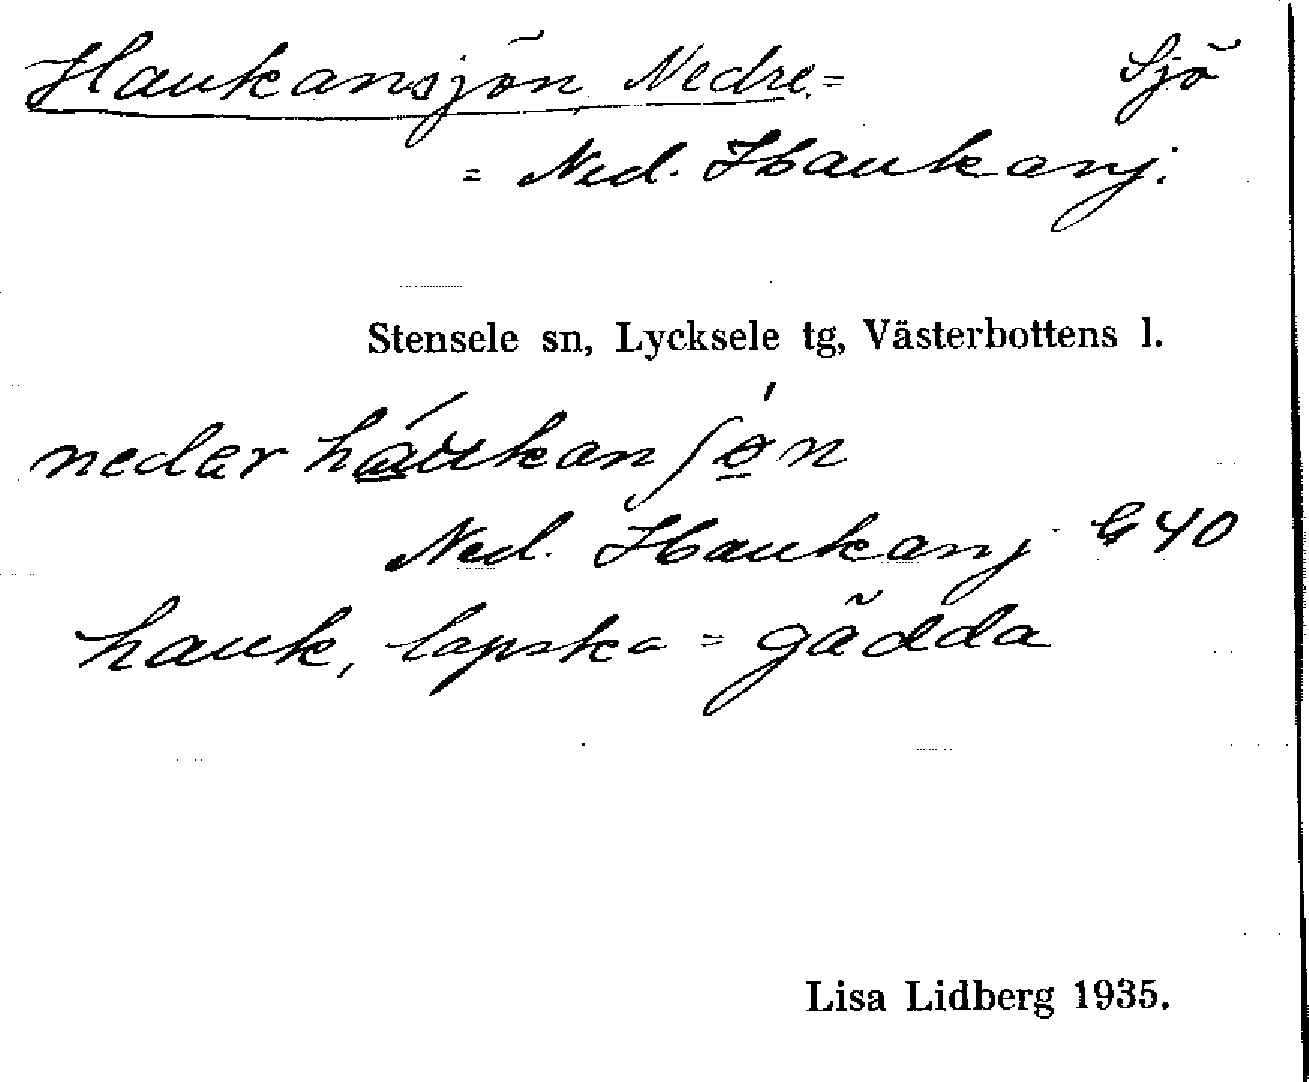 Haukansjön, Nedre = Sjö
= Ned. Haukansj.
Stensele sn, Lycksele tg, Västerbottens l.
nedər háukanʃø̱n
Ned. Haukansj G 40
hauk, lapska = gädda
Lisa Lidberg 1935.